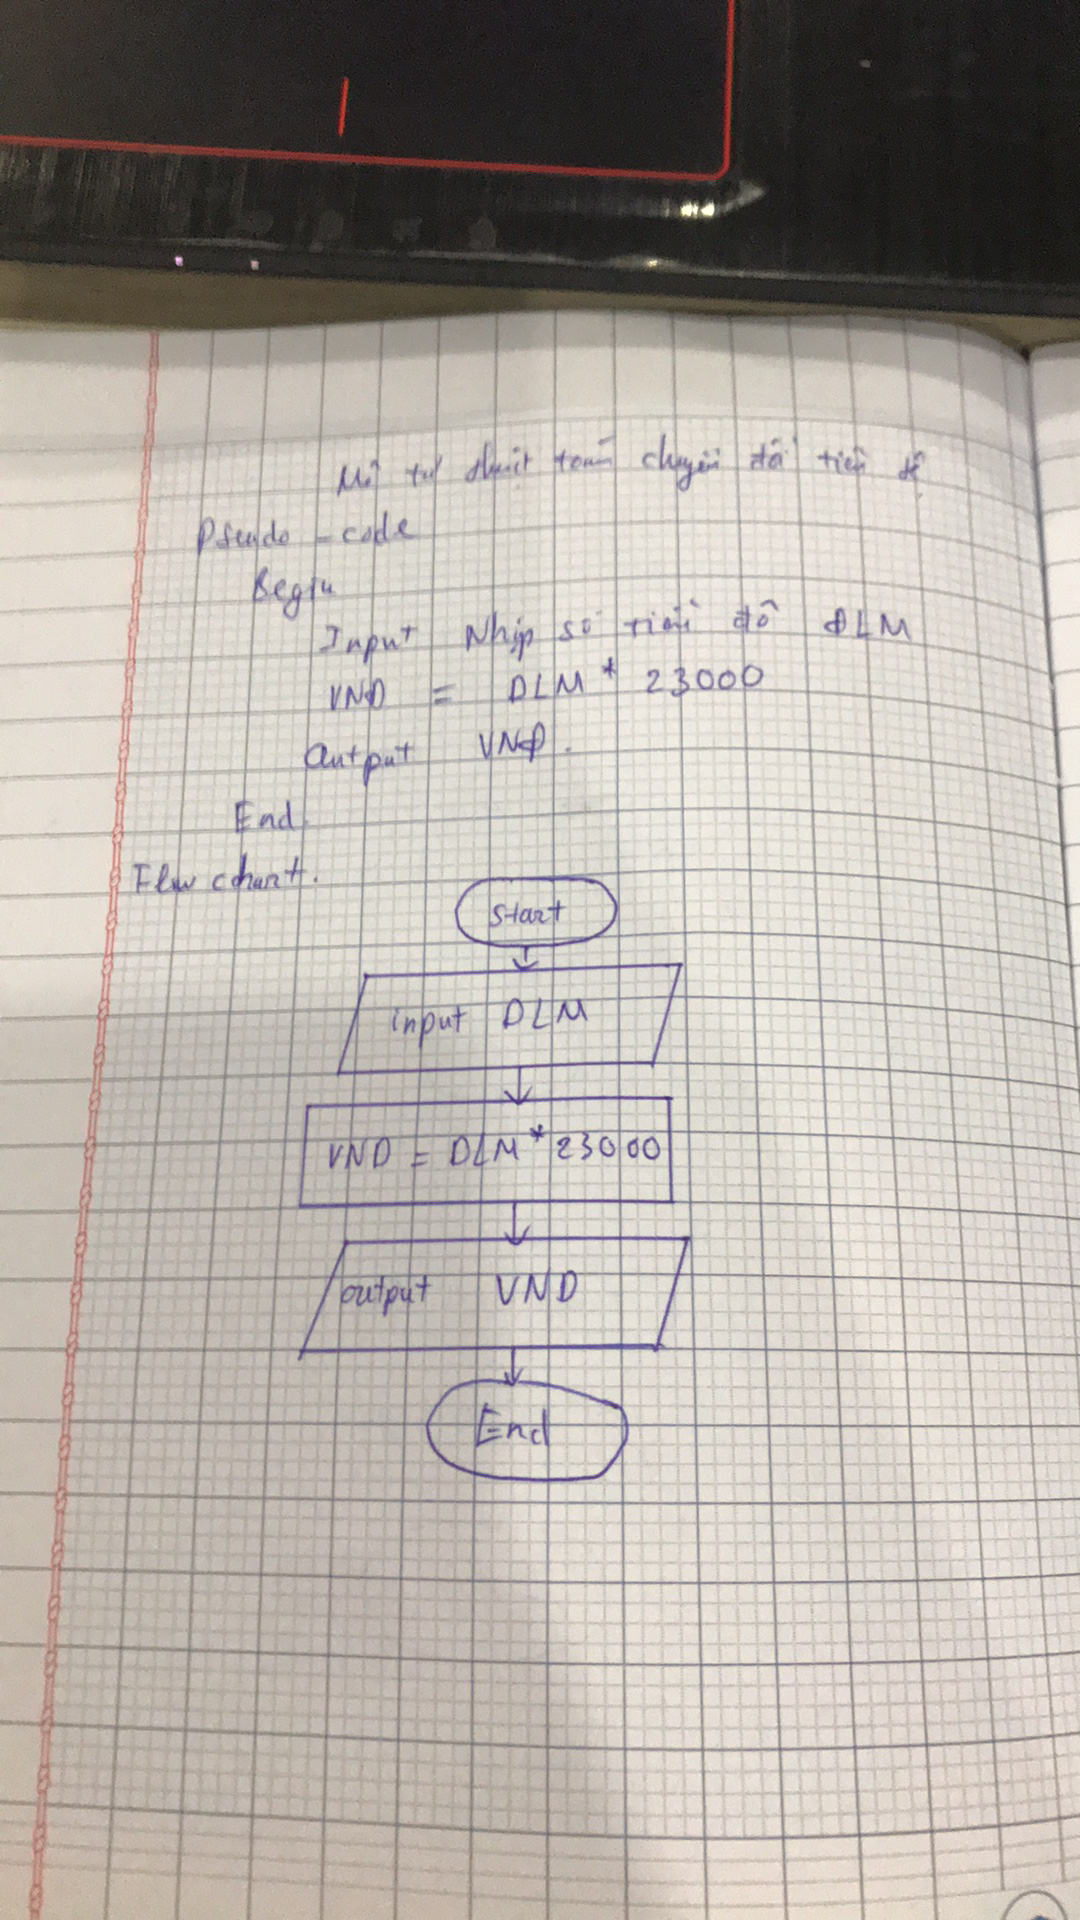 Mô tả thuật toán chuyển đổi tiền tệ
Pseudo - code
Begin
Input Nhập số tiền đô DLM
VND = DLM * 23000
Output VND.
End
Flow chart.
Start
input DLM
VND = DLM * 23000
output VND
End